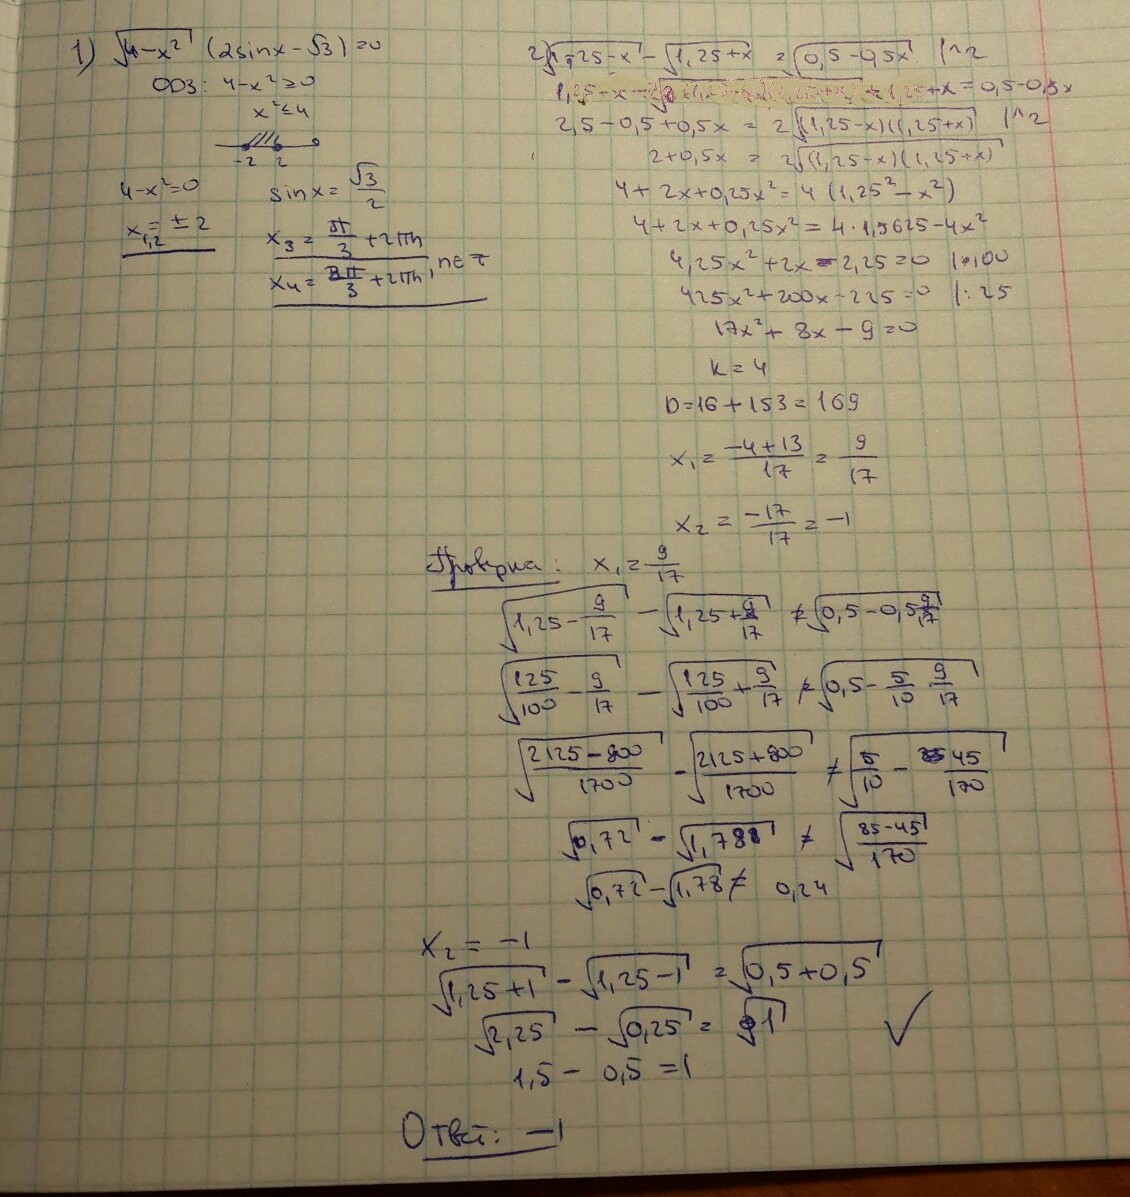 1) √(4-x²) (2sinx-√3)=0
ОДЗ: 4-x²≥0
x²≤4
-2 2
4-x²=0
x₁,₂=±2
sinx=√3/2
x₃=π/3+2πn
x₄=2π/3+2πn, n∈Z
2) √(1,25-x) - √(1,25+x) = √(0,5-0,5x) |^2
1,25-x - 2√((1,25-x)(1,25+x)) + 1,25+x=0,5-0,5x
2,5-0,5+0,5x = 2√((1,25-x)(1,25+x)) |^2
2+0,5x = 2√((1,25-x)(1,25+x))
4+2x+0,25x²=4(1,25²-x²)
4+2x+0,25x²=4·1,5625-4x²
4,25x²+2x-2,25=0 |·100
425x²+200x-225=0 |:25
17x²+8x-9=0
k=4
D=16+153=169
x₁=(-4+13)/17=9/17
x₂=-17/17=-1
Проверка: x₁=9/17
√(1,25-9/17) - √(1,25+9/17) ≠ √(0,5-0,5 9/17)
√(125/100-9/17) - √(125/100+9/17) ≠ √(0,5-5/10 9/17)
√((2125-900)/1700) - √((2125+900)/1700) ≠ √(5/10-45/170)
√0,72 - √1,788 ≠ √((85-45)/170)
√0,72 - √1,78 ≠ 0,24
x₂=-1
√(1,25+1) - √(1,25-1) = √(0,5+0,5)
√2,25 - √0,25 = √1
1,5-0,5=1
Ответ: -1